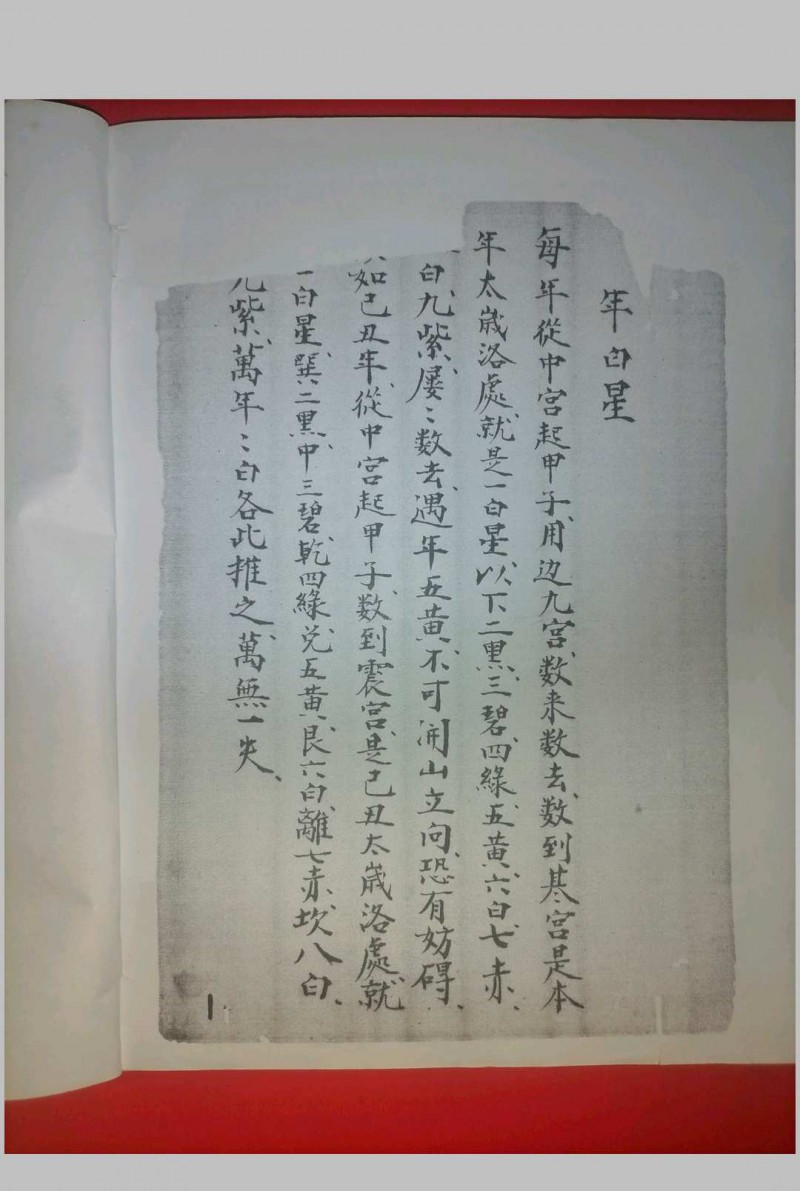 年白星
每年從中宮起甲子、用边九宮、数来数去、数到基宮是本
年太歲洛處、就是一白星、以下二黑、三碧、四綠、五黃、六白、七赤、
白、九紫、屡〻数去、遇年五黃、不可開山立向、恐有妨碍、
如己丑年、從中宮起甲子、数到震宮、是己丑太歲洛處、就
一白星、巽二黑、中三碧、乾四綠、兌五黃、艮六白、離七赤、坎八白、
九紫、萬年〻白各此推之、萬無一失、